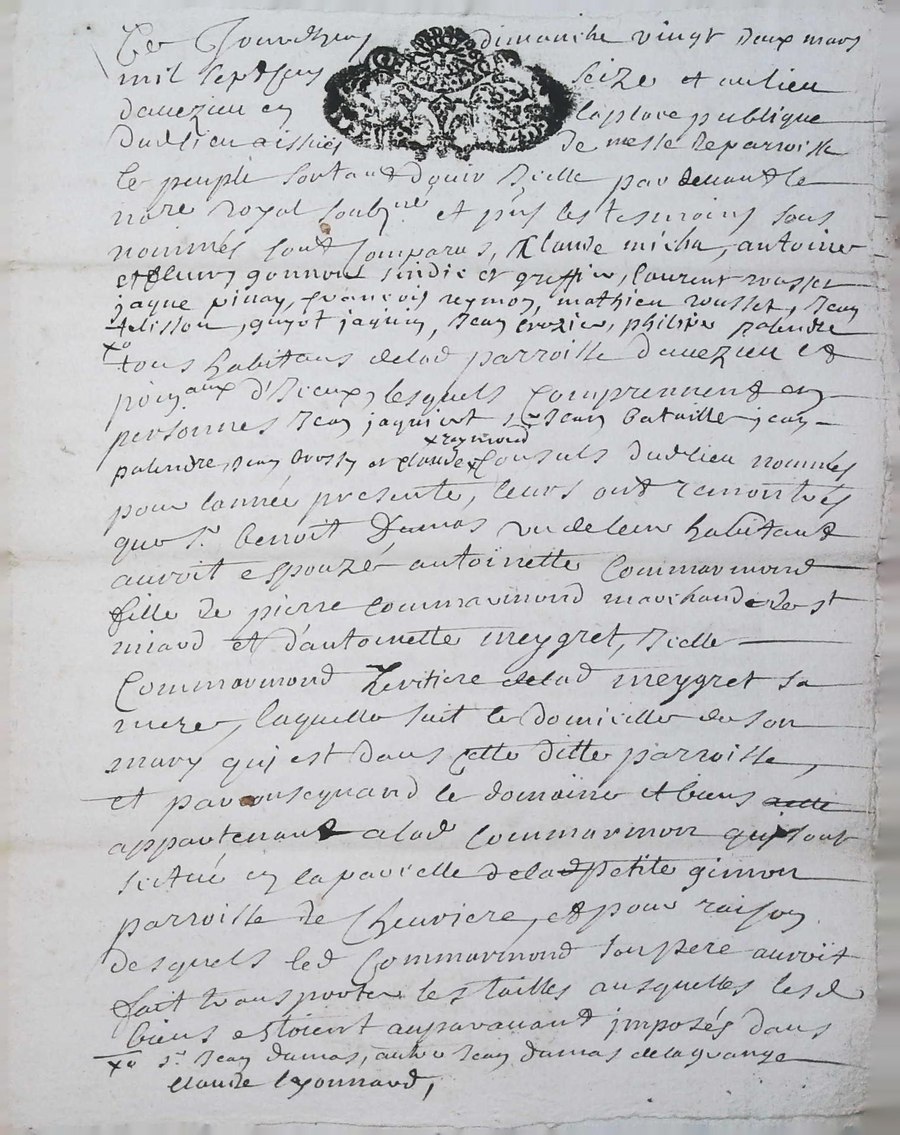 Ce Jourdhuy dimanche vingt deux mars
mil sept sens seize et au lieu
davezieu en la place publique
dudlieu aissües de messe de parroisse
le peuple sortand douir Icelle par devandt le
nore royal soubzne et pnts les tesmoins sous
nommés sont Comparus, Claude micha, antoine
et fleury gonnon sindic et greffier, laurent rousset
jaque pinay, francois reymon, mathieu rousset, Jean
telisson, guyot jaquin, Jean crozier, philipe palandre
xo
tous habitans delad parroisse davezieu et
poinaux d'Iceux, lesquels Comprennent en
personnes Jean jaquient Sr Jean bataille jean
x raymond
palandre, Jean brossy et Claude x Consuls dudlieu nommés
pour lannée presente, leurs ont remontrés
que Sr benoit Damas vu de leur habitant
auroit espouzé antoinette Commarmond
fille de pierre Commarmond marchand de st
miard et d'antoinette meygret, Icelle
Commarmond heritiere delad meygret sa
mere, laquelle suit le domicille de son
mary quj est dans Cette ditte parroisse,
et par consequand le domaine et biens
appartenant alad Commarmon quj sont
scitué en la parcelle delad petite gimon
parroisse de Chevriere, et pour raison
desquels led Commarmond son pere auroit
fait transporter les tailles ausquelles lesd
biens estoient auparavant jmposés dans
xo Sr Jean damas, autre Jean damas delagrange
claude leyonnard,